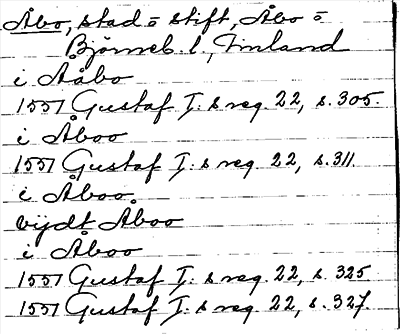 Åbo, stad o stift, Åbo o
Björneb. l., Finland
i Aåbo
1557 Gustaf I: s reg. 22, s. 305.
i Åboo
1557 Gustaf I: s reg. 22, s. 311.
i Åboo.
vijdt Åboo
i Åboo
1557 Gustaf I: s reg. 22, s. 325
1557 Gustaf I: s reg. 22, s. 327.